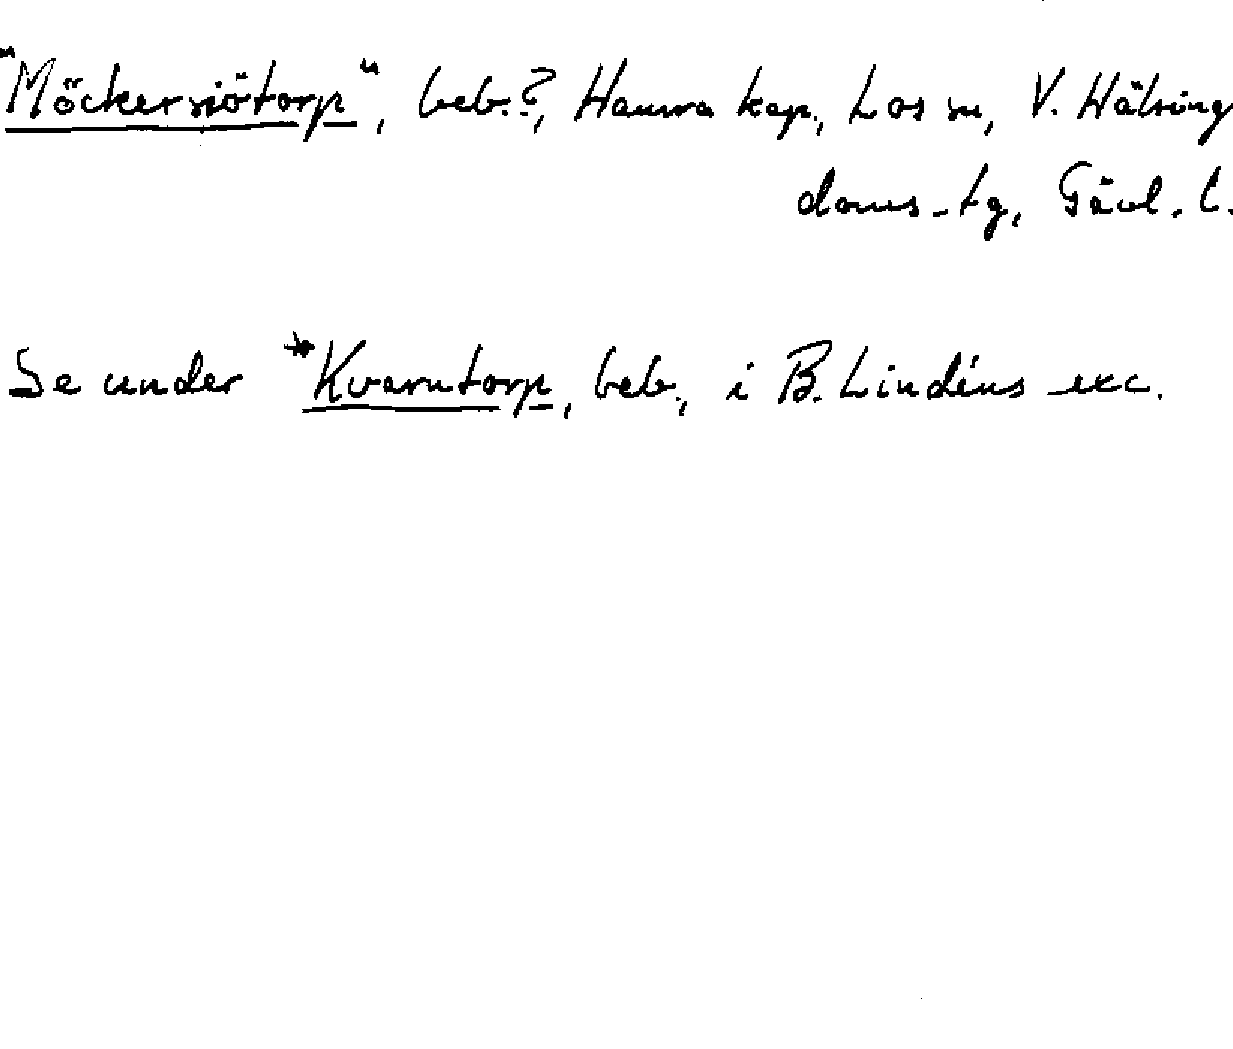 "Möckersiötorp", beb.?, Hamra kap., Los sn, V. Hälsing
doms-tg, Gävl. l.
Se under *Kvarntorp, beb., i B. Lindéns exc.